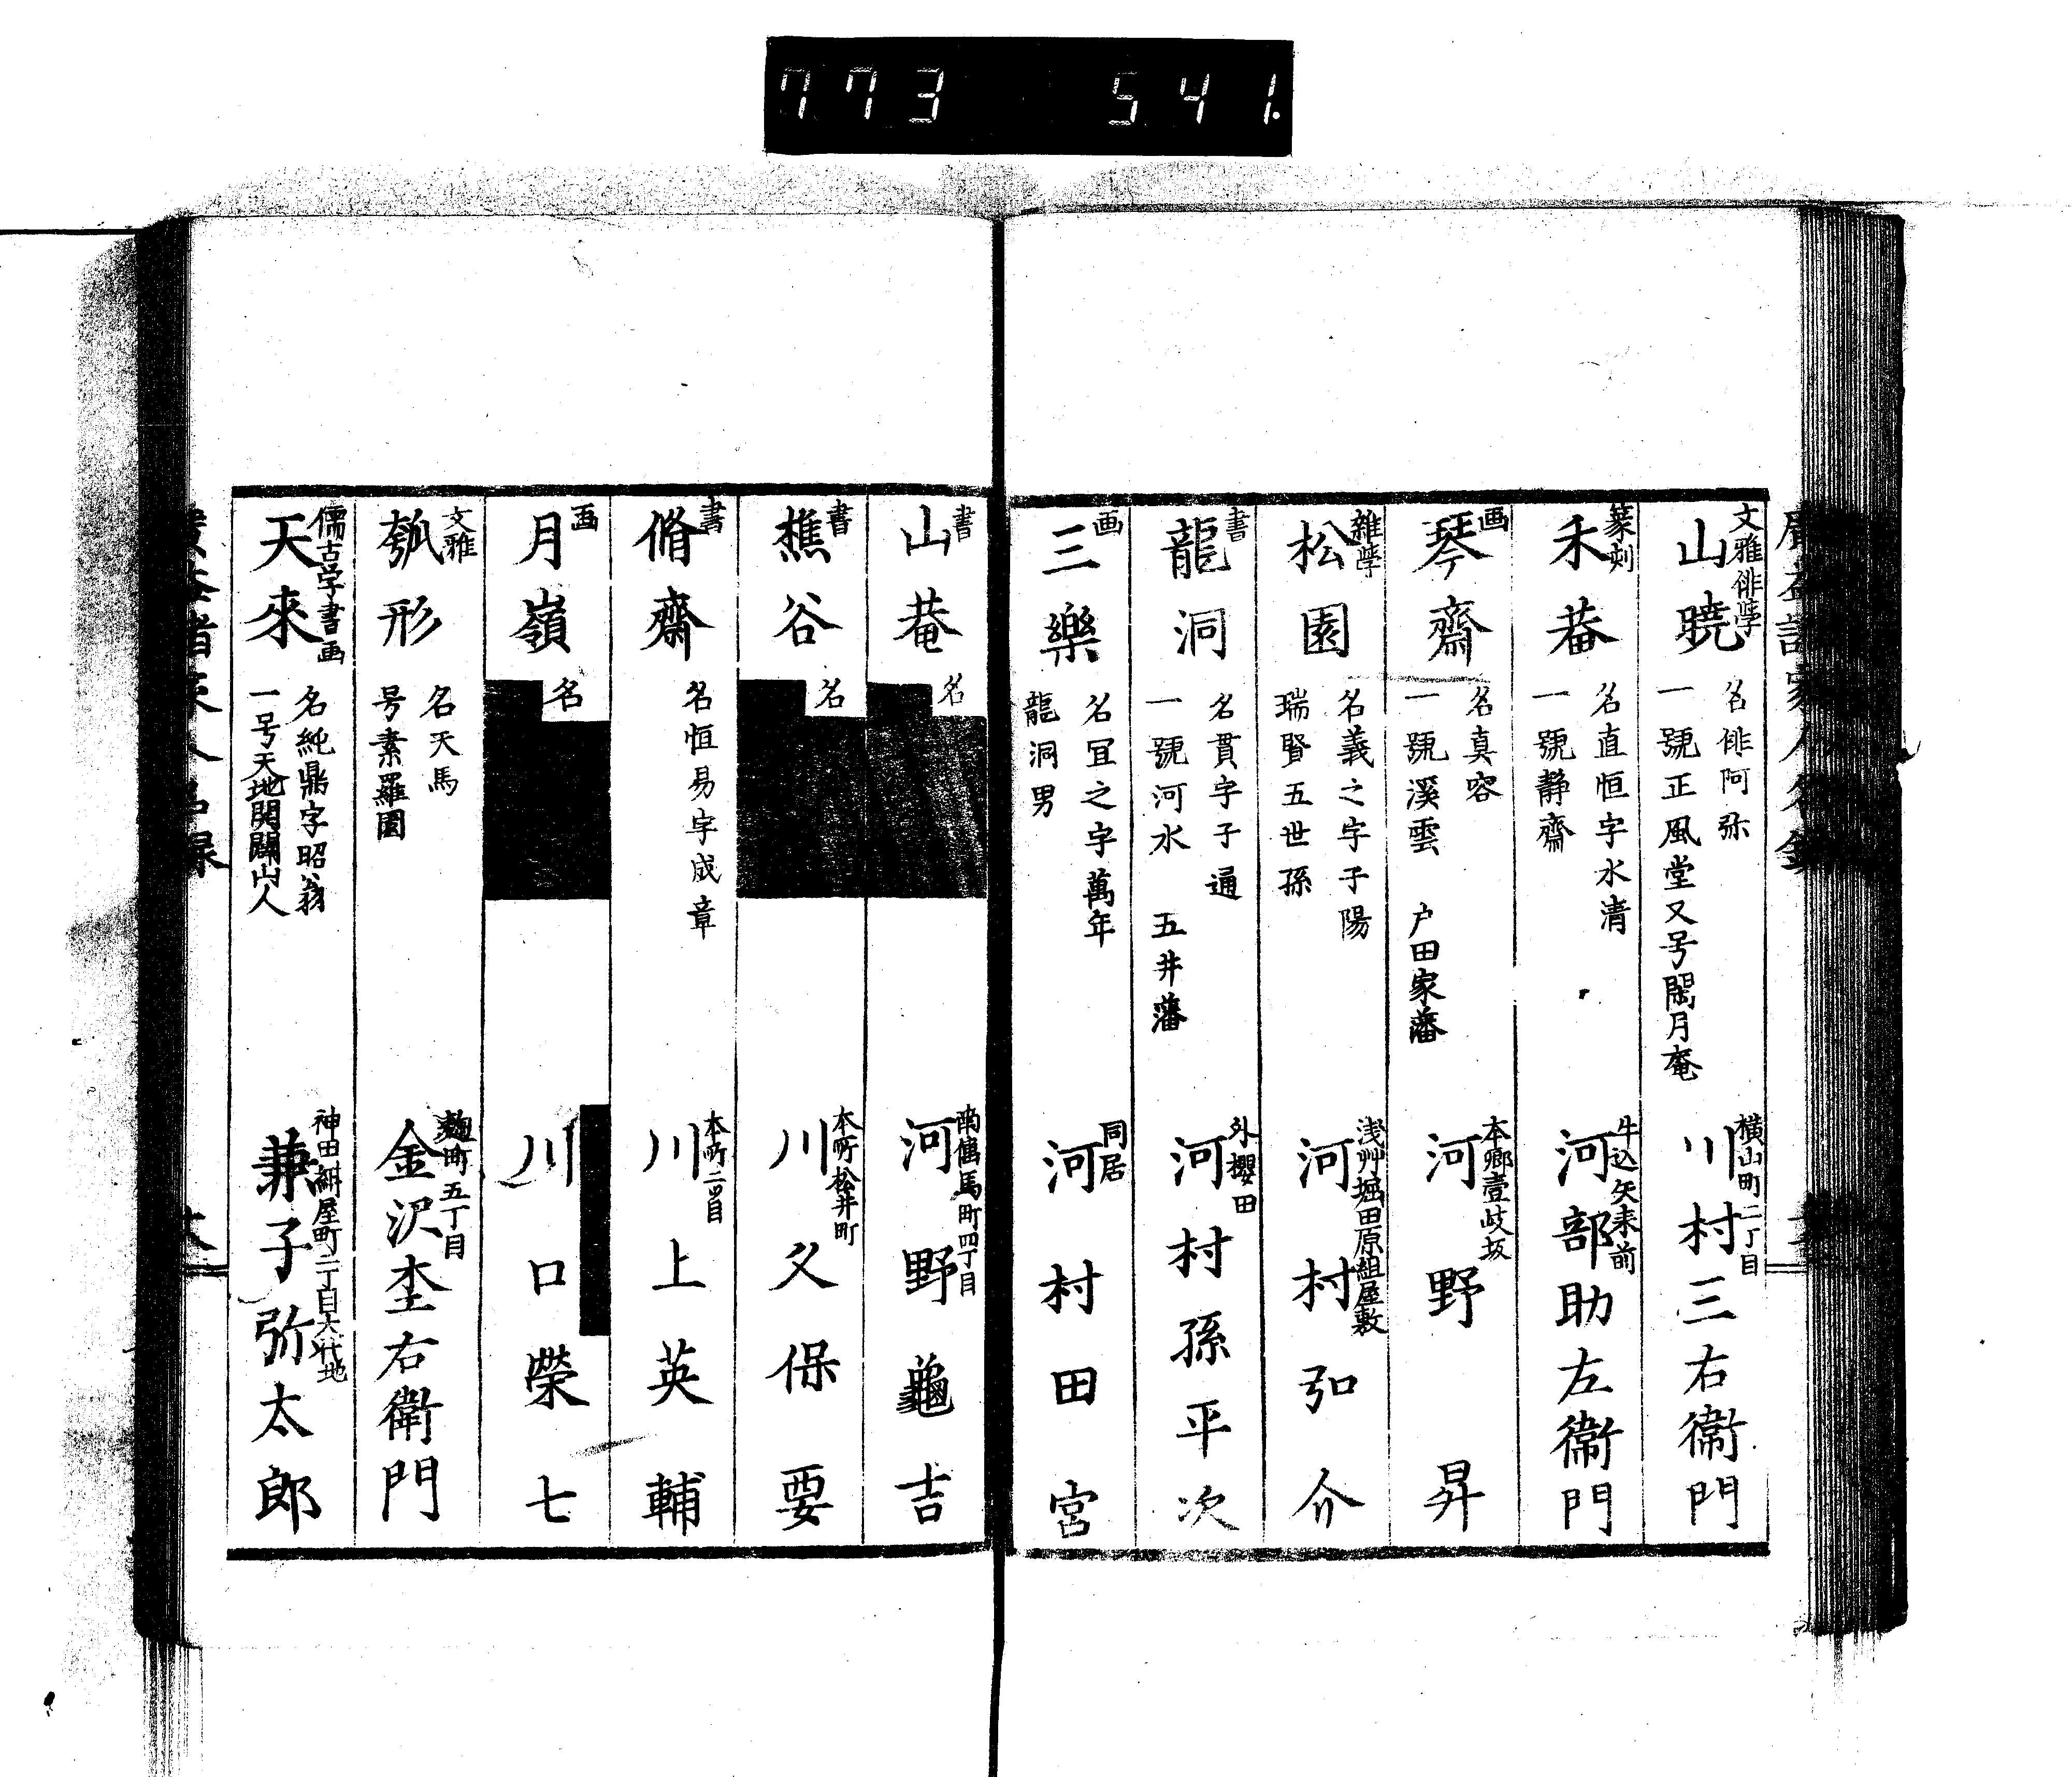 773 541.
文雅俳学
山曉
名俳阿弥
一號正風堂又号閑月庵
横山町二丁目
川村三右衛門
篆刻
禾菴
名直恒字水清
一號静齋
牛込矢来前
河部助左衛門
画
琴齋
名真容
一號溪雲 户田家藩
本郷壹岐坂
河野昇
雜学
松園
名義之字子陽
瑞賢五世孫
浅艸堀田原組屋敷
河村弘介
書
龍洞
名貫字子通
一號河水 五井藩
外櫻田
河村孫平次
画
三樂
名宜之字萬年
龍洞男
同居
河村田宮
書
山菴
名
南傳馬町四丁目
河野龜吉
書
樵谷
名
本所松井町
川父保要
書
脩齋
名恒易字成章
本所二ツ目
川上英輔
画
月嶺
名
川口榮七
文雅
瓠形
名天馬
号素羅園
麹町五丁目
金沢杢右衛門
儒古学書画
天來
名純鼎字昭翁
一号天地開闢山人
神田紺屋町二丁目大代地
兼子弥太郎